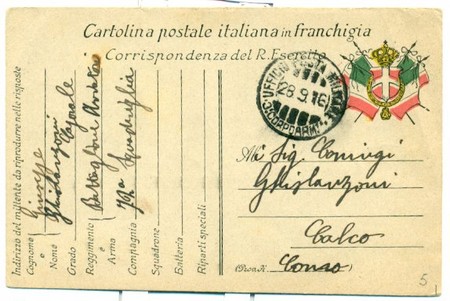 Cartolina postale italiana in franchigia
Corrispondenza del R. Esercito
UFFICIO POSTA MILITARE
28.9.16
Indirizzo del mittente da riprodurre nelle risposte
Cognome e Nome
Giuseppe
Ghislanzoni
Grado
Caporale
Reggimento e Arma
Battaglione
Compagnia
Squadriglia
Squadrone
Batteria
Riparti speciali
Al Sig.
Ghislanzoni
Calco
Como
5